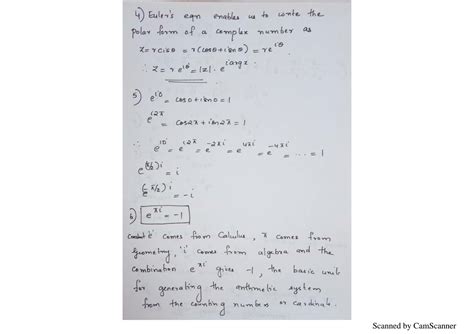 4) Euler's eqn enables us to write the
polar form of a complex number as
z=rcisθ = r(cosθ+isinθ) = re^iθ
∴ z = re^iθ = |z|. e^i argz
5) e^i0 = cos0+isin0=1
e^i2π = cos2π+isin2π=1
∴ e^i0 = e^i2π = e^-2πi = e^4πi = e^-4πi = ..... = 1
e^(π/2)i = i
e^(-π/2)i = -i
6) e^πi = -1
'e' comes from Calculus, π comes from
geometry, 'i' comes from algebra and the
combination e^πi gives -1, the basic unit
for generating the arithmetic system
from the counting numbers or cardinals.
Scanned by CamScanner